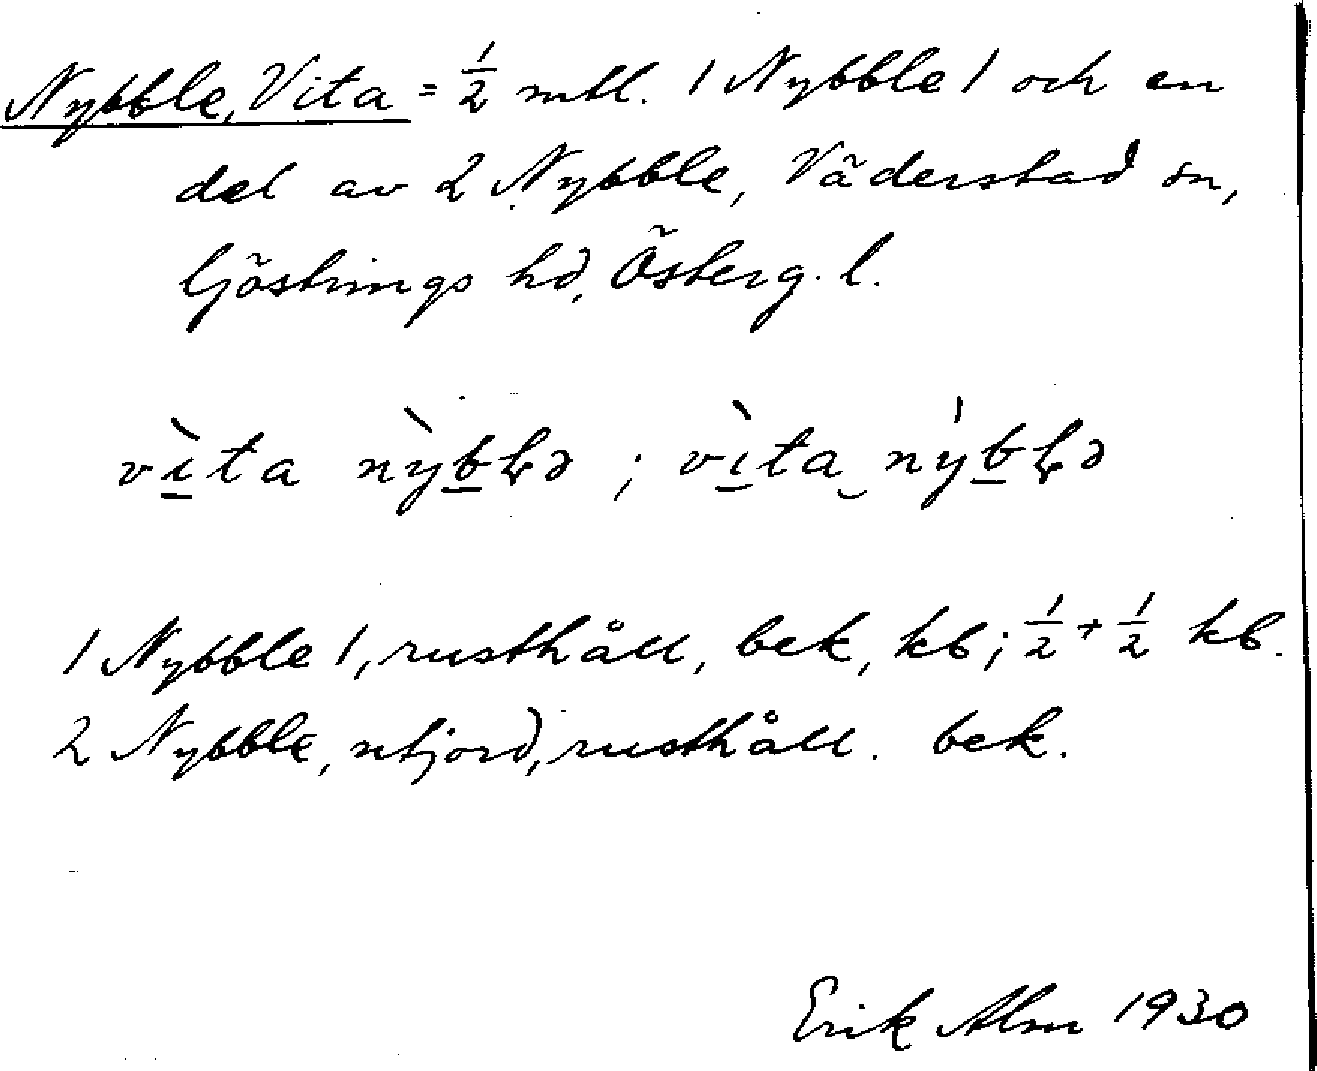 Nybble, Vita = 1/2 mtl. 1 Nybble 1 och en
del av 2 Nybble, Väderstad sn,
Göstrings hd, Österg. l.
vìta nỳbḷə ; vìta‿nýbḷə
1 Nybble 1, rusthåll, bek, kb; 1/2 + 1/2 kb.
2 Nybble, utjord, rusthåll. bek.
Erik Alm 1930